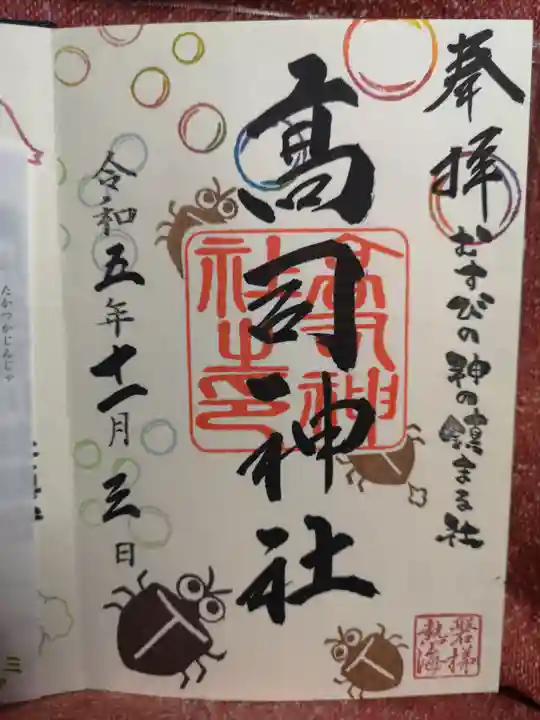 奉拝
むすびの神の鎮まる社
髙司神社
令和五年十一月三日
磐梯
熱海
たかつかじんじゃ
三